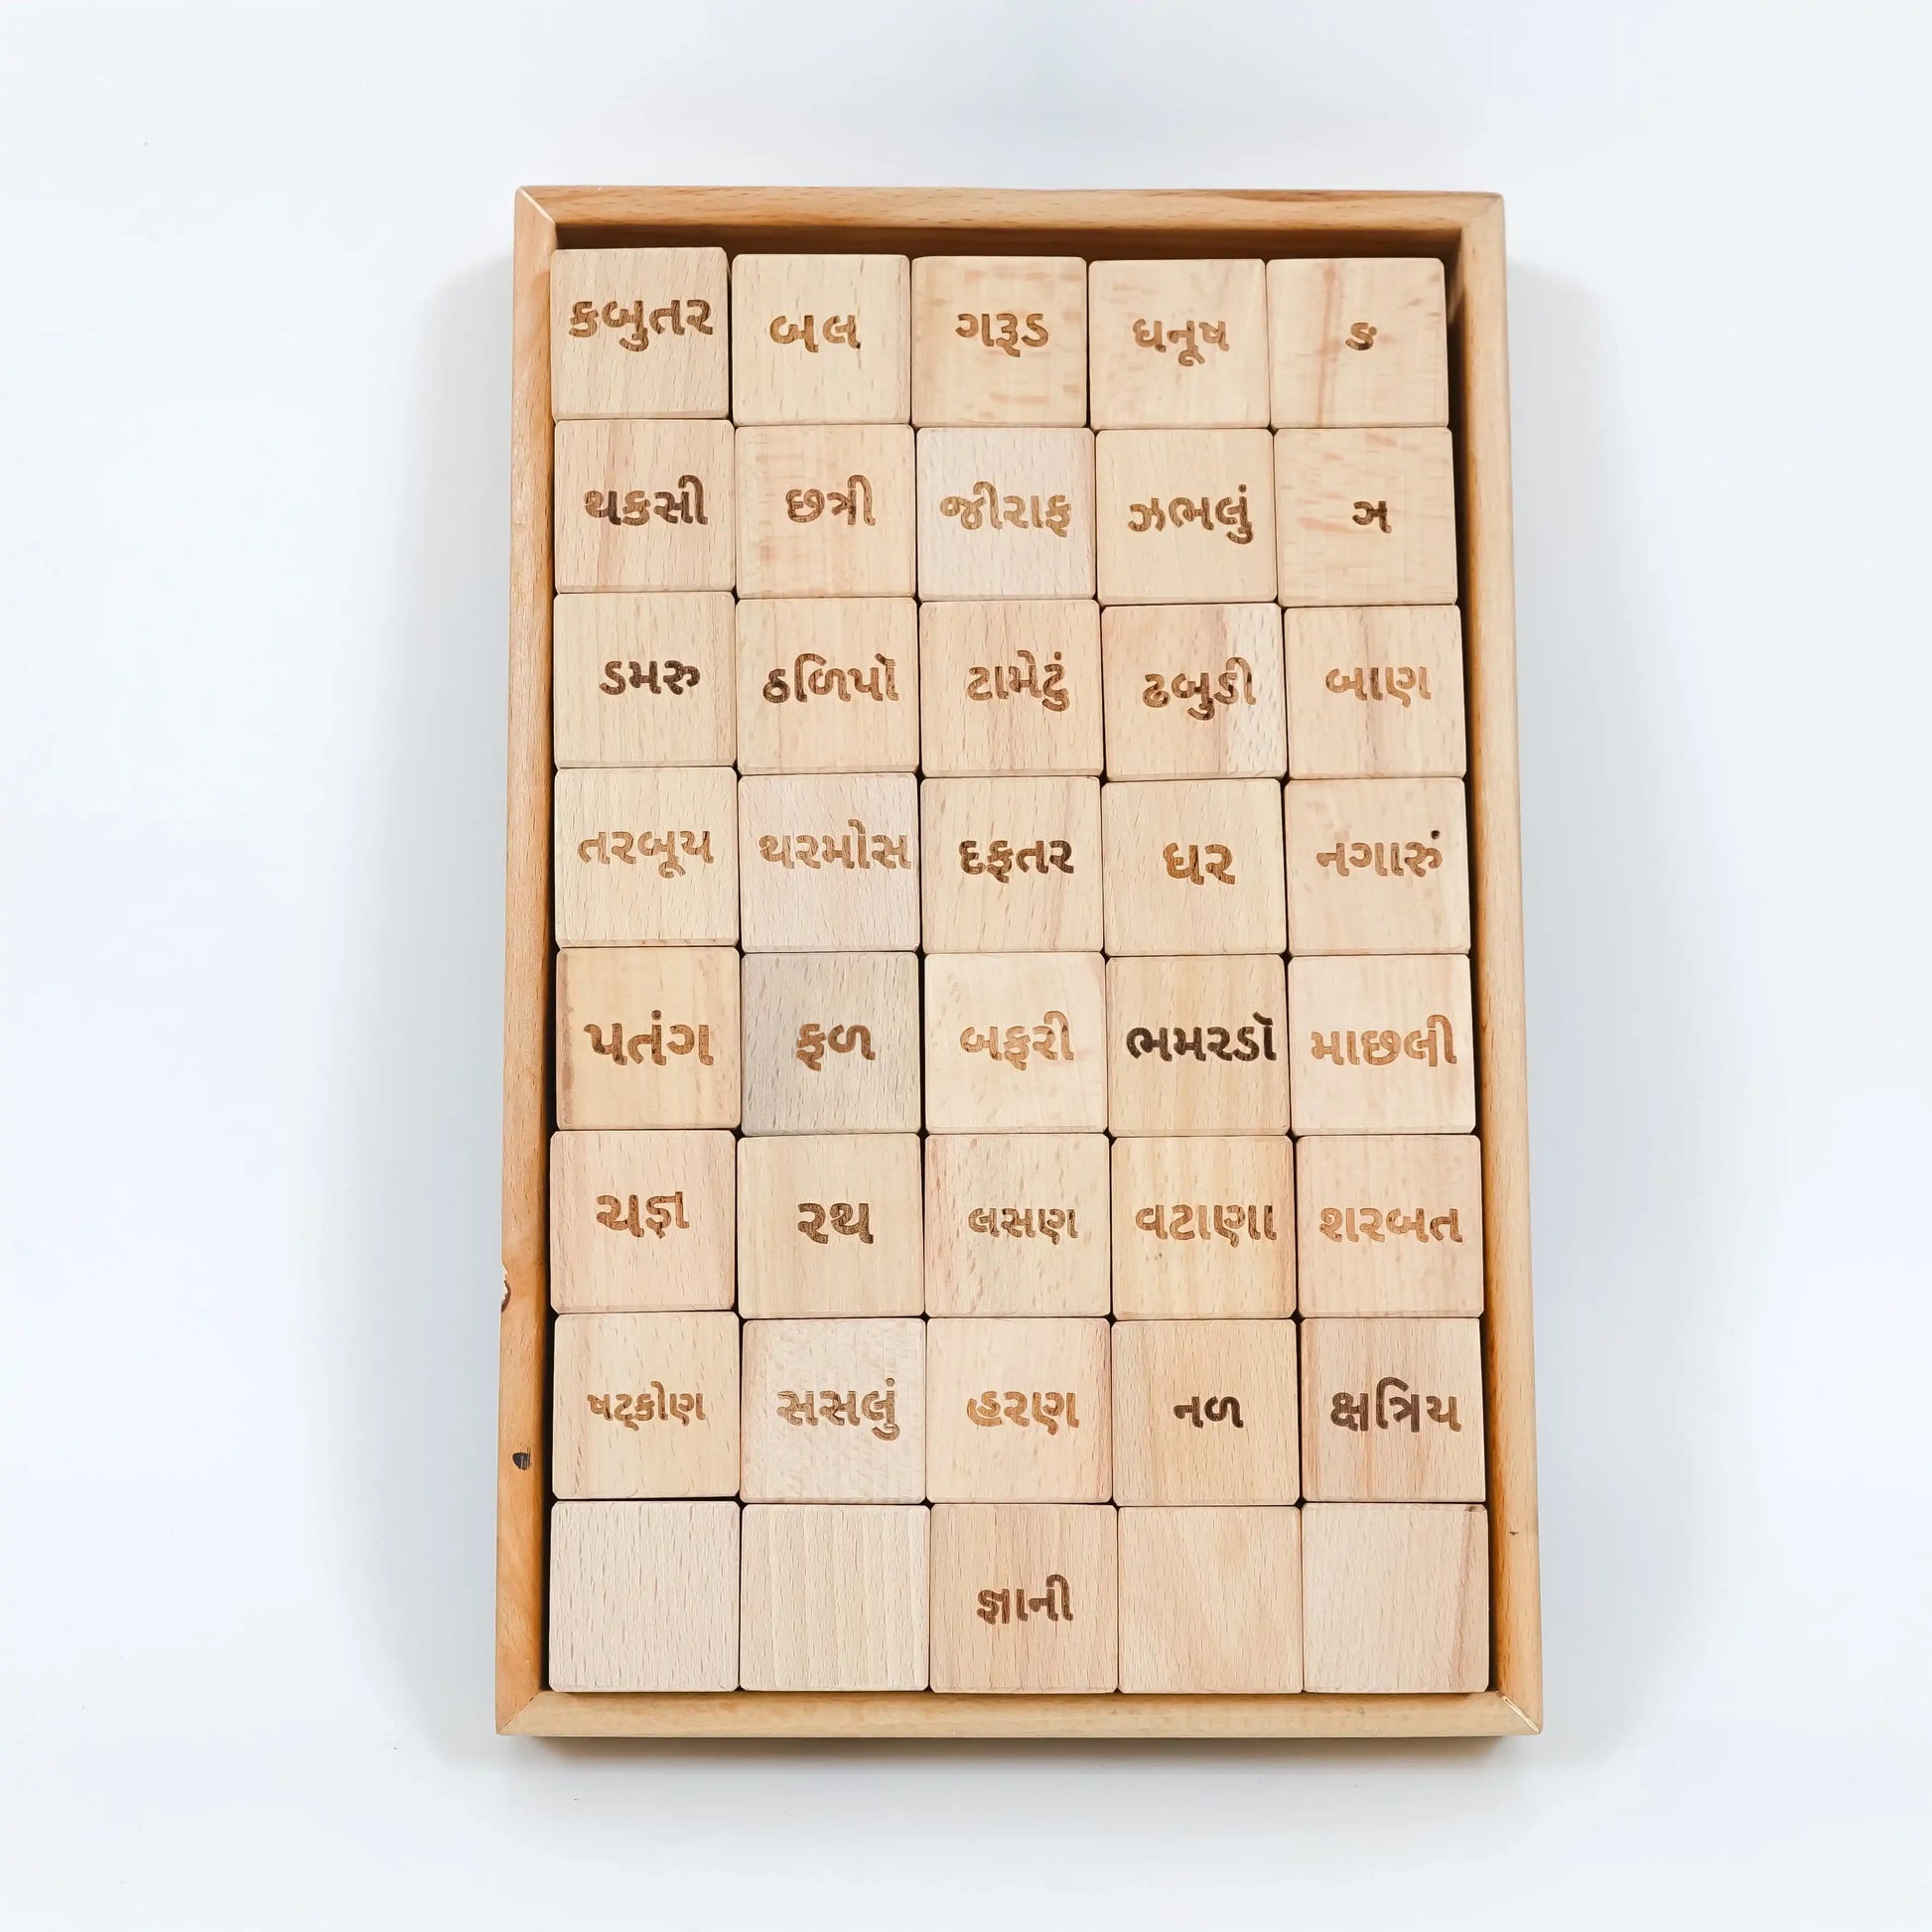 કબુતર બલ ગરૂડ ધનૂષ ઙ
થકસી છત્રી જીરાફ ઝભલું ઞ
ડમરુ ઠળિપૉ ટામેટું ઢબુડી બાણ
તરબૂય થરમોસ દફતર ઘર નગારું
પતંગ ફળ બફરી ભમરડૉ માછલી
યજ્ઞ રથ લસણ વટાણા શરબત
ષટ્કોણ સસલું હરણ નળ ક્ષત્રિય
જ્ઞાની